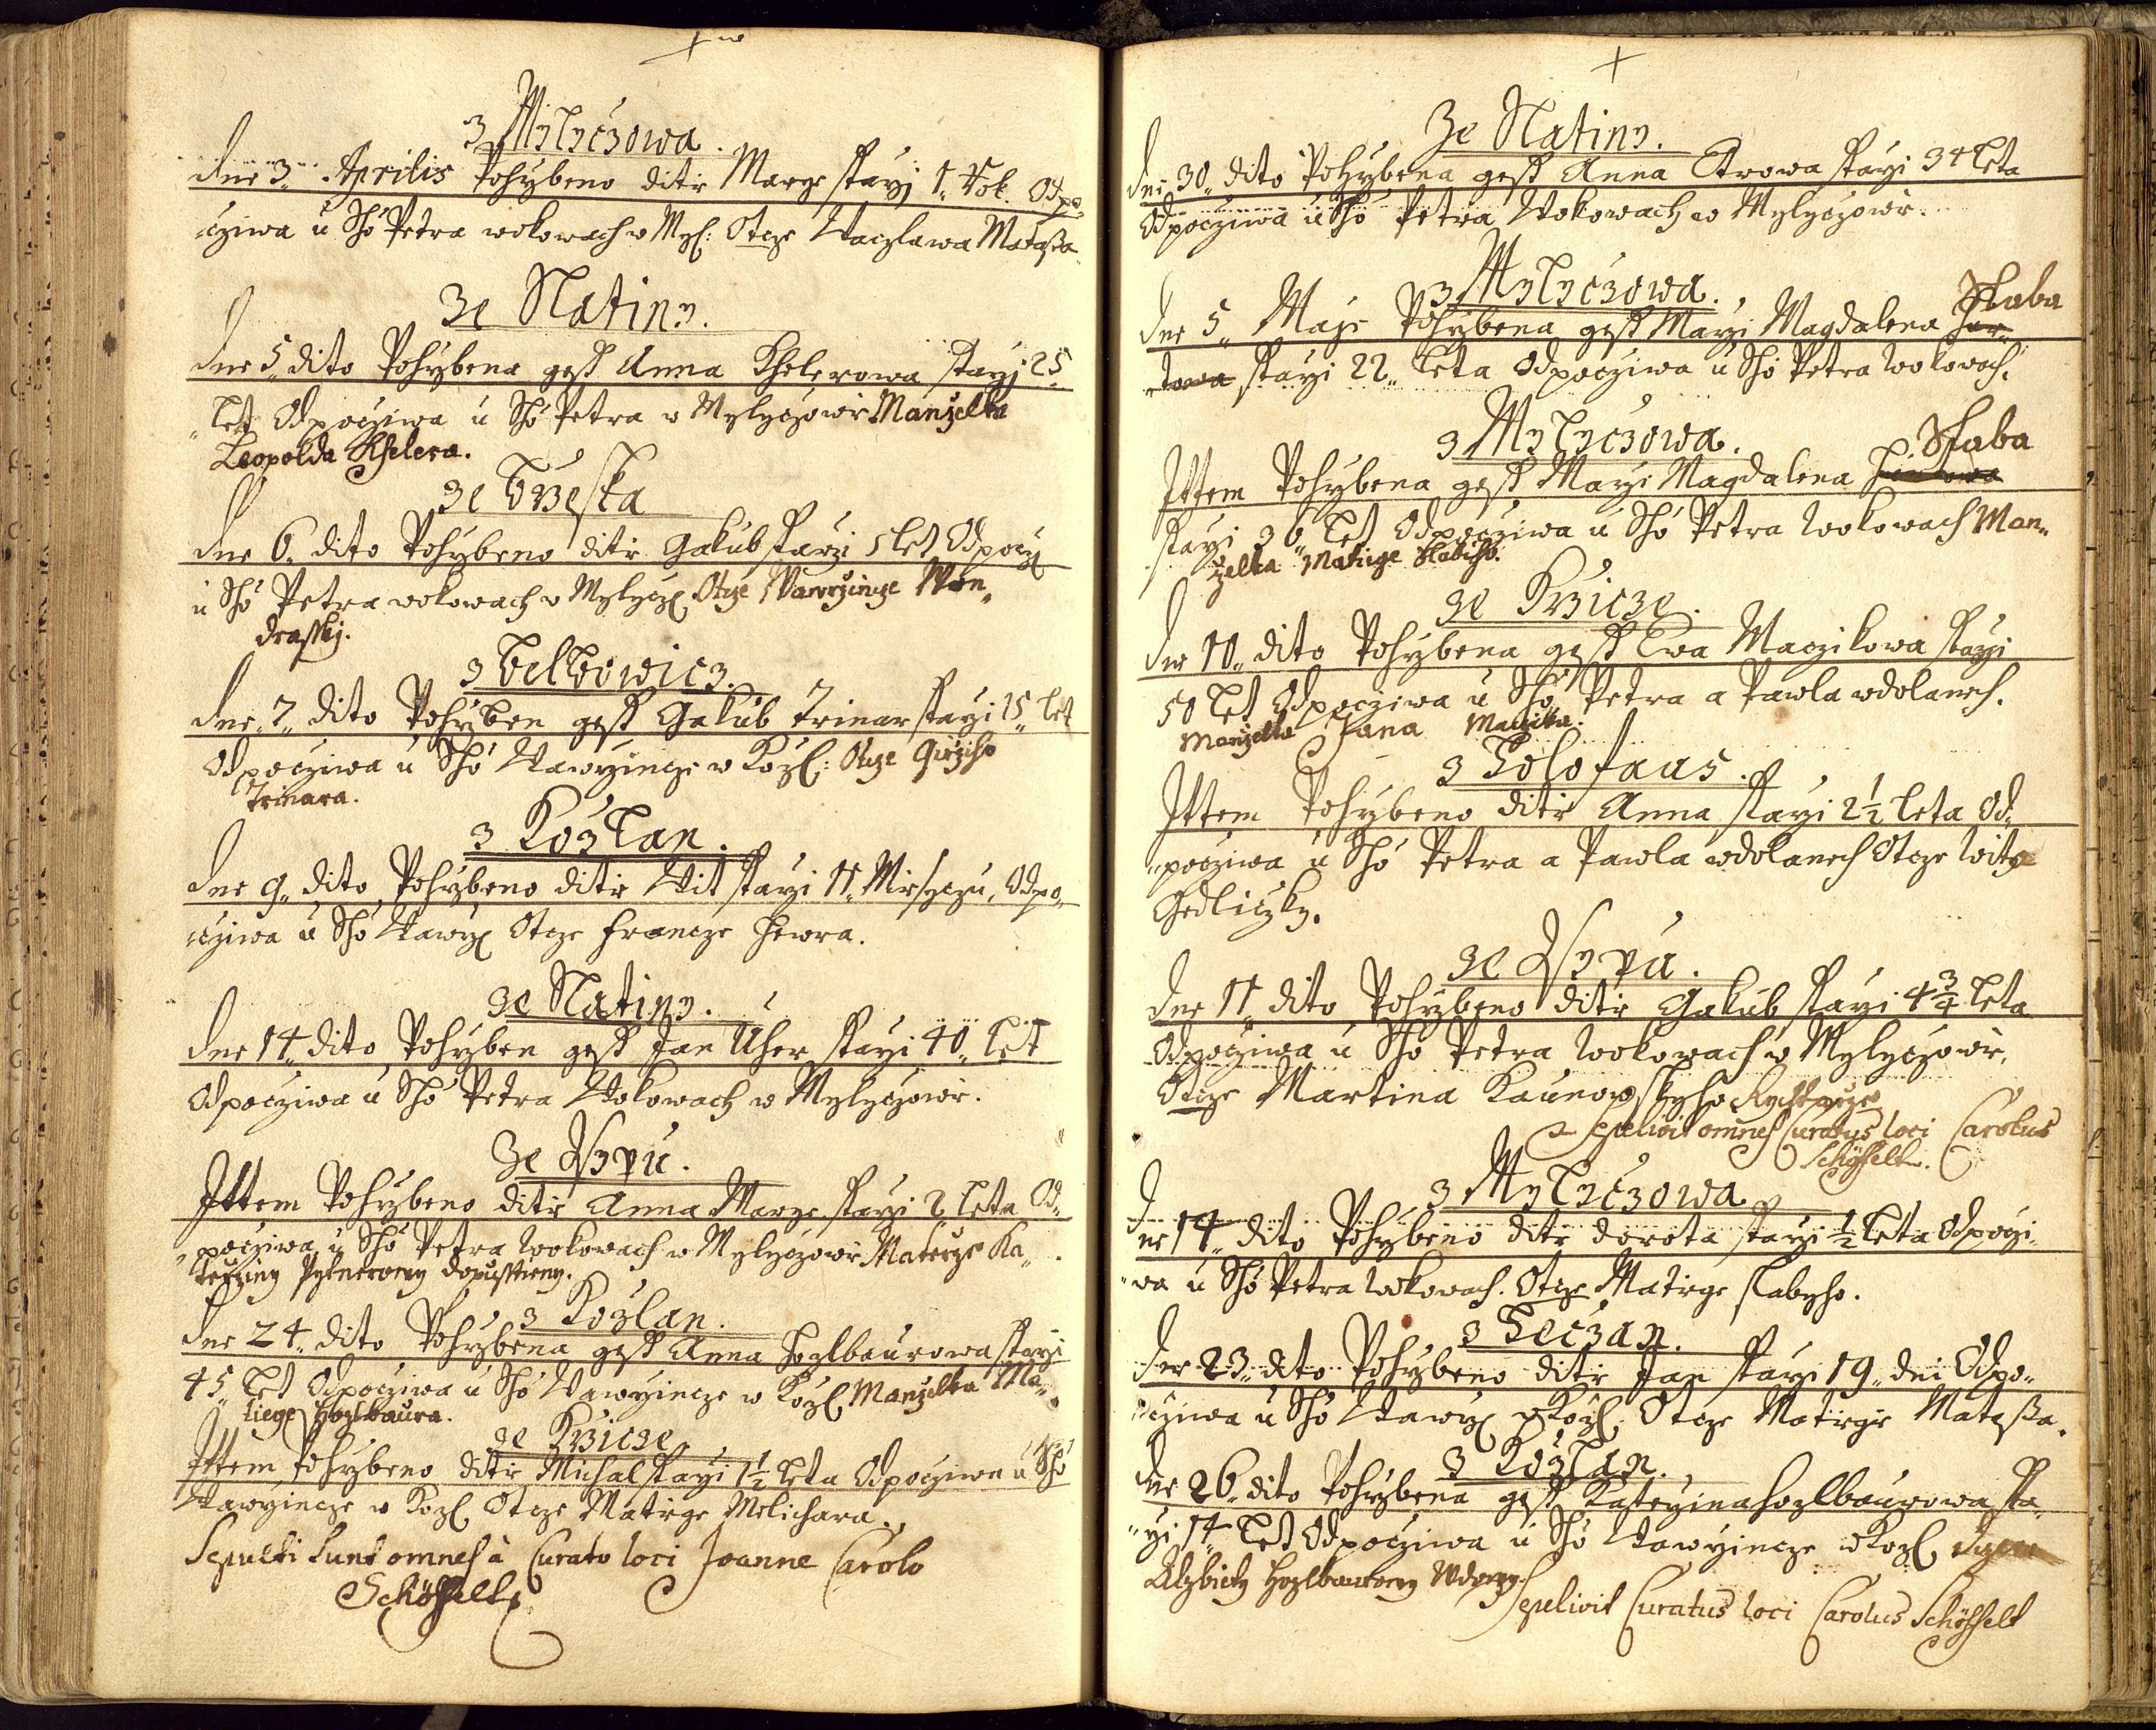 3 Mylyczowa.
dne 3. Aprilis Pohrbeno ditie Marye starzj 1. Rok. Odpo„
cziwa u Sho Petra wokowach w Myl: Otcze Waczlawa Mataßa
Ze Slatiny.
dne 5. dito Pohrbena gest Anna Khelerowa starzj 25.
let Odpocziwa u Sho Petra w Mylyczowie Manzelka
Leopolda Khelera.
ze Brzeska
dne 6. dito Pohrbeno ditie Gakub starzi 5 let Odpocz
u Sho Petra wokowach w Mylycz. Otcze Wawrzincze Won„
drassky.
z Belbowicz.
dne 7. dito Pohrben gest Gakub Trinar starzi 15. let
Odpocziwa u Sho Wawrzincze w Kozl: Otcze Girziho
Trinara.
z Kozlan.
dne 9. dito Pohrbeno ditie Wit starzi 11. Miesyczu, Odpo„
cziwa u Sho Wawrz Otcze Francze Hewra.
ze Slatiny.
dne 14. dito Pohrben gest Jan Uher starzi 40. let
Odpocziwa u Sho Petra Wokowach w Mylyczowie.
Ze Wsypu.
Ittem Pohrbeno ditie Anna Marye starzi 2 leta Od„
pocziwa u Sho Petra wokowach w Mylyczowie Materze Ka„
terziny Pylnerowy dopusstieny.
z Kozlan.
dne 24. dito Pohrbena gest Anna Hozlbaurowa starzi
45. let Odpocziwa u Sho Wawrzincze w Kozl Manzelka Ma„
tiege Hozlbaura.
ze Krzicze.
Ittem Pohrbeno ditie Michal starzi 1½ leta Odpocziwa u Sho
Wawrzincze w Kozl Otcze Matiege Melichara.
Sepulti sunt omnes à Curato loci Joanne Carolo
Schöffelt
Ze Slatiny.
dne 30. dito Pohrbena gest Anna Etrowa starzi 34 leta
Odpocziwa u Sho Petra Wokowach w Mylyczowie.
z Mylyczowa.
dne 5. Maje Pohrbena gest Marzi Magdalena Slaba
starzi 22. leta Odpocziwa u Sho Petra Wokowach.
z Mylyczowa.
Ittem Pohrbena gest Marzi Magdalena Slaba
starzi 36. let Odpocziwa u Sho Petra wokowach Man„
zelka Matiege Slabiho.
ze Krzicze.
dne 10. dito Pohrbena gest Ewa Maczikowa starzi
50 let Odpocziwa u Sho Petra a Pawla wdolanech.
Manzelka Jana Maczika.
z Holofaus.
Ittem Pohrbeno ditie Anna starzi 2½ leta Od„
pocziwa u Sho Petra a Pawla wdolanech Otcze Wita
Gedliczky.
ze Wsypu.
dne 11. dito Pohrbeno ditie Gakub starzi 4¾ leta
Odpocziwa u Sho Petra Wokowach w Mylyczowie,
Otcze Martina Kaunowskyho Rychtarze
Sepelivit omnes Curatus loci Carolus
Schöffelt.
z Mylyczowa
dne 14. dito Pohrbeno ditie dorota starzi ½ leta Odpoczi„
wa u Sho Petra Wokowach. Otcze Matiege slabyho.
z Heczan.
dne 23. dito Pohrbeno ditie Jan starzi 19. dni Odpo„
cziwa u Sho Wawrz w Kozl. Otcze Matiegie Mataßa.
z Kozlan.
dne 26. dito Pohrbena gest Katerzina Hozlbaurowa sta„
rzi 14. let Odpocziwa u Sho Wawrzincze w Kozl dcera
Alzbiety Hozlbaurowy Wdowy. Sepelivit Curatus loci Carolus Schöffelt